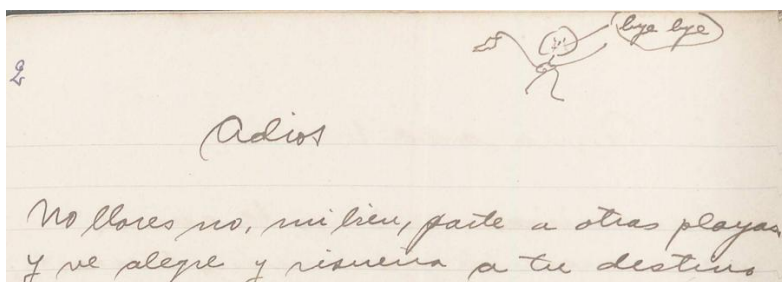 bye bye
2
Adios
No llores no, mi bien, parte a otras playas
y ve alegre y risueña a tu destino